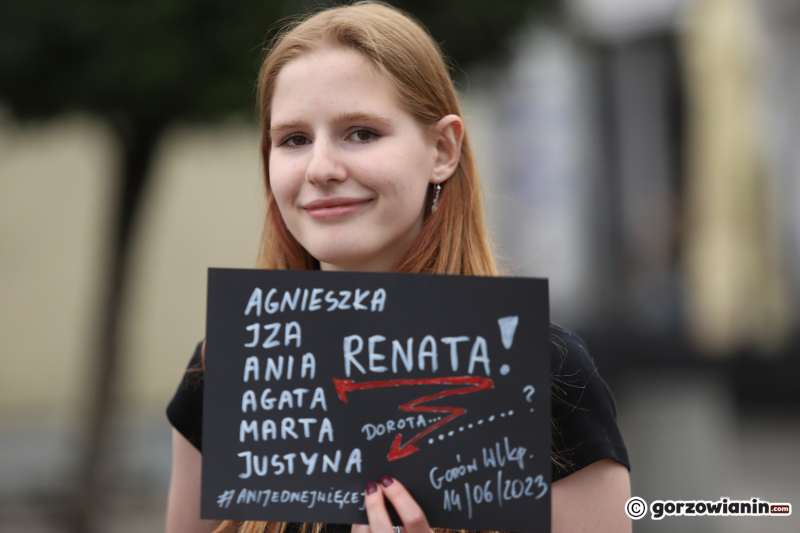 AGNIESZKA
IZA
ANIA
RENATA!
AGATA
MARTA
DOROTA... ........?
JUSTYNA
#ANIJEDNEJWIĘCEJ
GORÓW WLKP.
14/06/2023
© gorzowianin.com